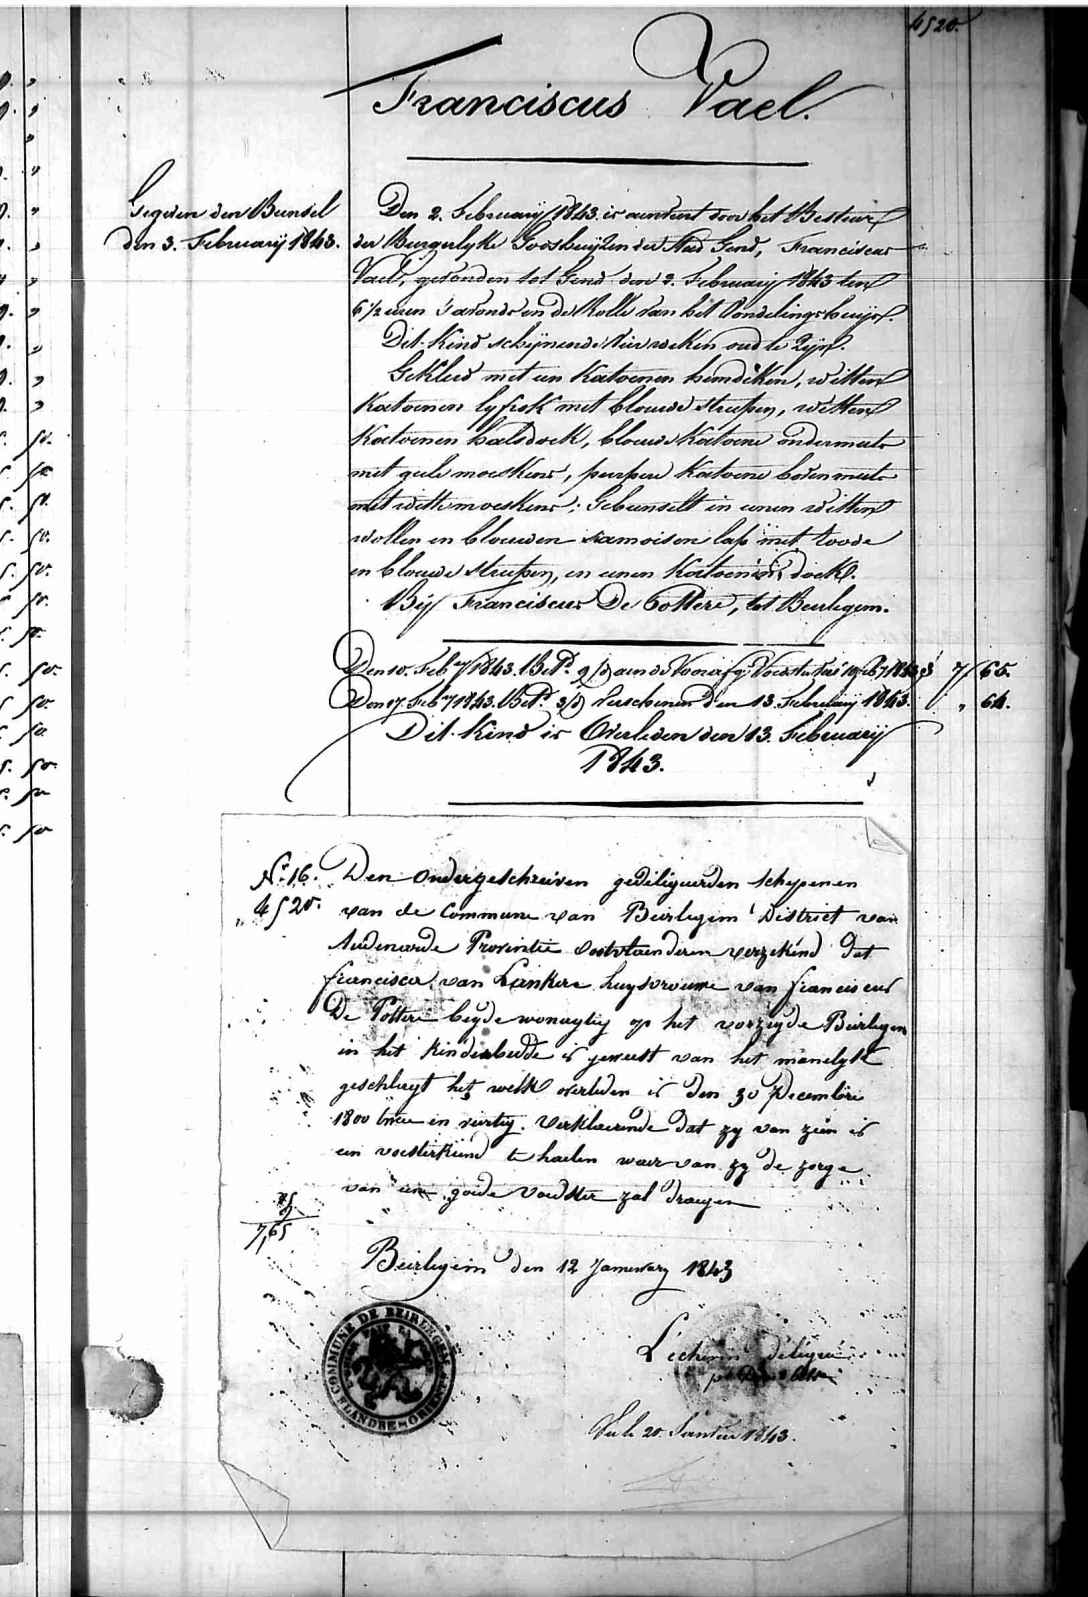 4520.
Franciscus Vael.
Gegeven den Bunsel
den 3. February 1843.
Den 2. February 1843. is aenveert door het Bestuer
der Burgerlyke Godshuyzen der Stad Gend, Franciscus
Vael, gevonden tot Gend den 2. February 1843 ten
6 1/2 uren s'avonds in de Rolle van hét Vondelingshuys.
Dit Kind schynende vier weken oud te Zyn.
Gekleed met een Katoenen hemdeken, witten
Katoenen lyfrok met blauwe streepen, witten
Katoenen halsdoek, blauwe Katoene ondermuts
met geele moeskens, purpere Katoene bovenmuts
met witte moeskens; Gebunselt in eenen witten
wollen en blauwen siamoisen lap met roode
en blauwe streepen, en eenen Katoenen doek.
Bÿ Franciscus De Pottere, tot Beirlegem.
Den 10. Feby 1843. Betd. 7 65.
Den 17. Feby 1843. Betd. Verschenen den 13. February 1843. " 64.
Dit Kind is Overleden den 13. February
1843.
No. 16. Den Ondergeschreven gedeligeerden schepenen
4520. van de Commune van Beirlegem District van
Audenarde Provintie Oostvlaenderen verzekend dat
francisca van Lankere huysvrouwe van franciscus
De Pottere beyde wonagtig op het vorzeyde Beirlegem
in het kinderbedde is geweest van het manelyk
geschlagt het welk overleden is den 30 Decembre
1800 twee en veertig. Verklaerende dat zy van zein is
een voesterkind te haelen waer van zy de zorge
van een goede voedster zal draegen
7,65
Beirlegem den 12 Januwary 1843
L'échevin délégué
COMMUNE DE BEIRLEGEM
FLANDRE ORIENTALE
Vu le 20 Janvier 1843.